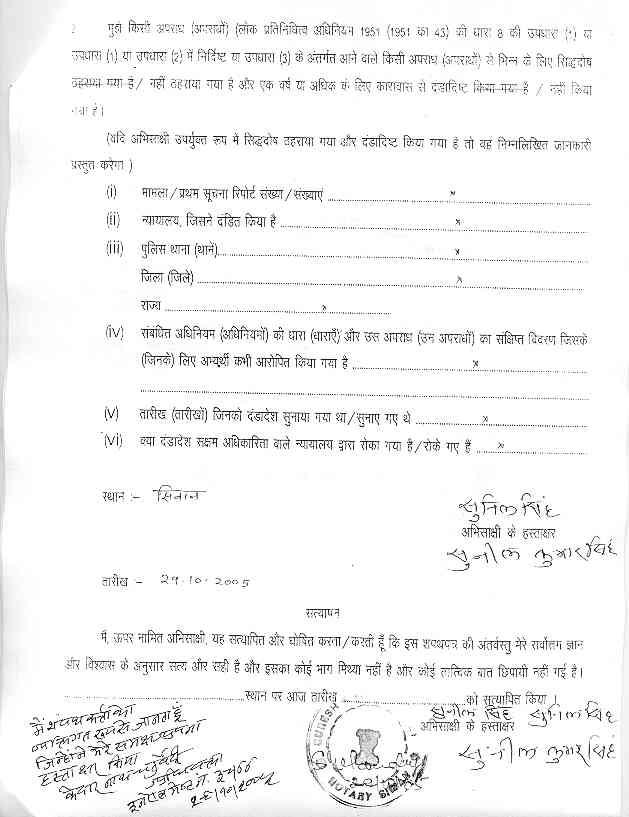 2 मुझे किसी अपराध (अपराधों) (लोक प्रतिनिधित्व अधिनियम 1951 (1951 का 43) की धारा 8 की उपधारा (1) या
उपधारा (1) या उपधारा (2) में निर्दिष्ट या उपधारा (3) के अंतर्गत आने वाले किसी अपराध (अपराधों) से भिन्न के लिए सिद्धदोष
ठहराया गया है / नहीं ठहराया गया है और एक वर्ष या अधिक के लिए कारावास से दंडादिष्ट किया गया है / नहीं किया
गया है।
(यदि अभिसाक्षी उपर्युक्त रूप में सिद्धदोष ठहराया गया और दंडादिष्ट किया गया है तो वह निम्नलिखित जानकारी
प्रस्तुत करेगा )
(i) मामला/प्रथम सूचना रिपोर्ट संख्या/संख्याएं x
(ii) न्यायालय, जिसने दंडित किया है x
(iii) पुलिस थाना (थाने) x
जिला (जिले) x
राज्य x
(iv) संबंधित अधिनियम (अधिनियमों) की धारा (धाराएँ) और उस अपराध (उन अपराधों) का संक्षिप्त विवरण जिसके
(जिनके) लिए अभ्यर्थी कभी आरोपित किया गया है x
(v) तारीख (तारीखों) जिनको दंडादेश सुनाया गया था/सुनाए गए थे x
(vi) क्या दंडादेश सक्षम अधिकारिता वाले न्यायालय द्वारा रोका गया है/रोके गए हैं x
स्थान :- सिवान
सुनिल सिंह
अभिसाक्षी के हस्ताक्षर
सुनील कुमार सिंह
तारीख - 29.10.2005
सत्यापन
मैं, ऊपर नामित अभिसाक्षी, यह सत्यापित और घोषित करता/करती हूँ कि इस शपथपत्र की अंतर्वस्तु मेरे सर्वोत्तम ज्ञान
और विश्वास के अनुसार सत्य और सही है और इसका कोई भाग मिथ्या नहीं है और कोई तात्विक बात छिपायी नहीं गई है।
स्थान पर आज तारीख को सत्यापित किया ।
सुनील सिंह सुनिल सिंह
अभिसाक्षी के हस्ताक्षर
सुनील कुमार सिंह
मैं शपथ कर्ता को
व्यक्तिगत रूप से जानता हूँ
जिन्होंने मेरे समक्ष अपना
हस्ताक्षर किया
केदार नाथ
NOTARY